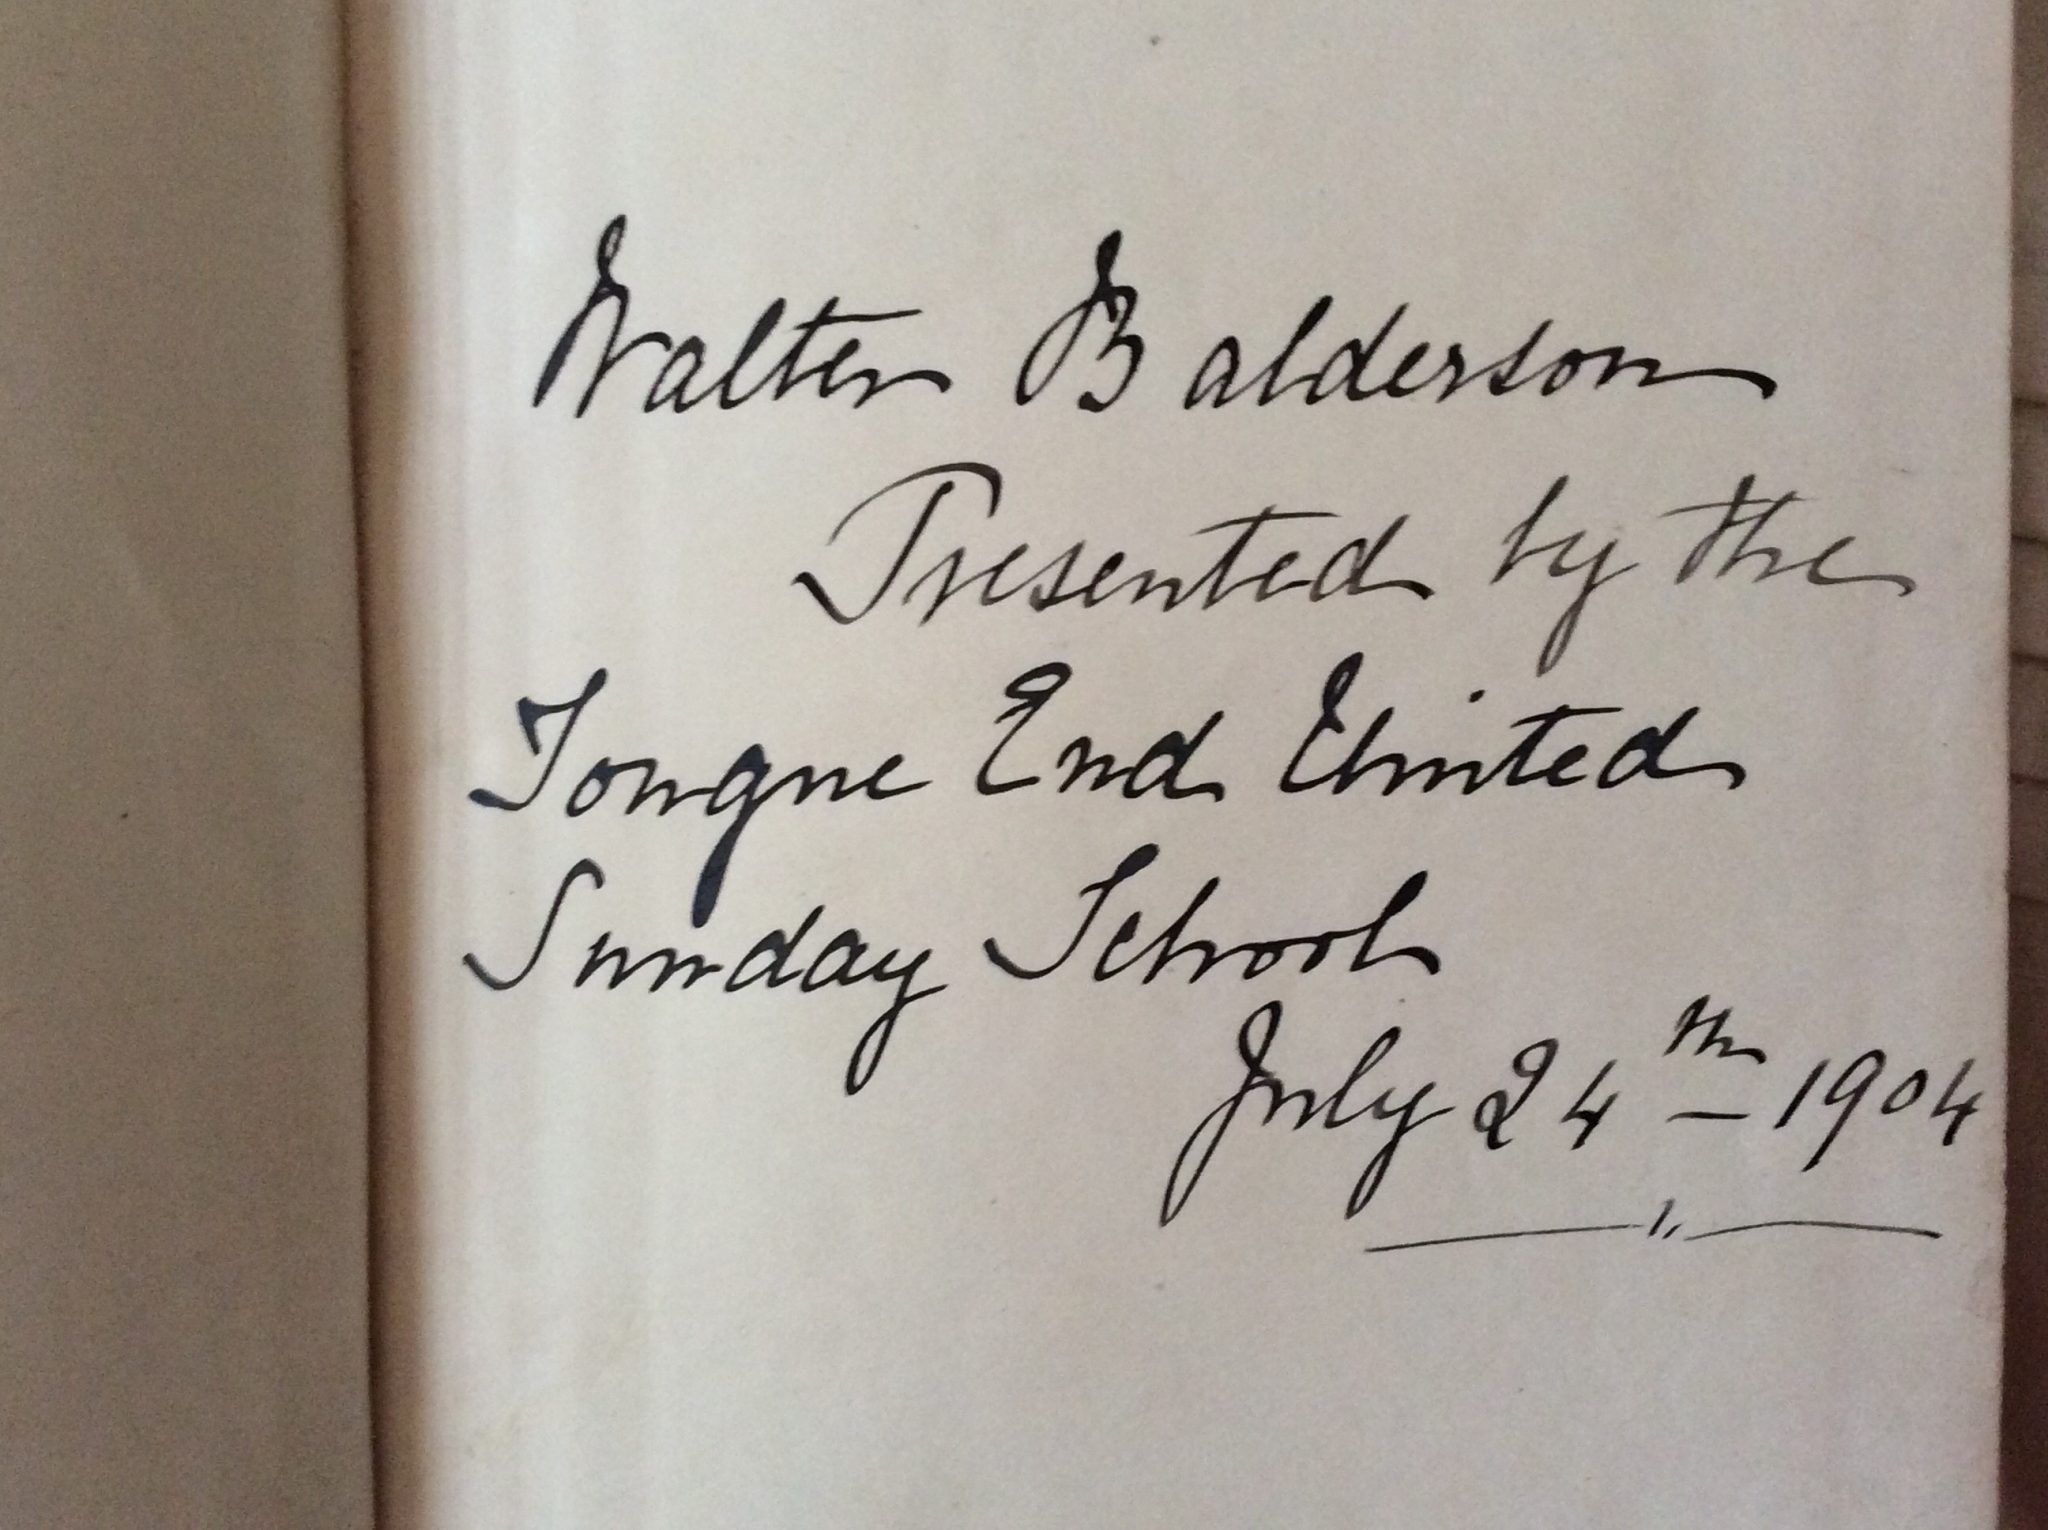 Walter Balderson
Presented by the
Tongue End United
Sunday School
July 24th - 1904